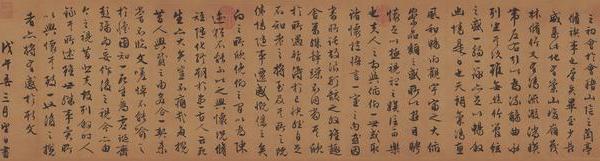 之初會于會稽山陰之蘭亭
脩禊事也羣賢畢至少長
咸集此地有崇山峻領茂
林脩竹又有清流激湍暎
帶左右引以為流觴曲水
列坐其次雖無絲竹管弦
之盛一觴一詠亦足以暢敘
幽情是日也天朗氣清惠
風和暢仰觀宇宙之大俯
察品類之盛所以遊目騁
懷足以極視聽之娛信可樂
也夫人之相與俯仰一世或取
諸懷抱悟言一室之內或因
寄所託放浪形骸之外雖趣
舍萬殊靜躁不同當其欣
於所遇暫得於己怏然自足
不知老之將至及其所之既
倦情隨事遷感慨係之矣
向之所欣俛仰之間以為陳
迹猶不能不以之興懷況脩
短隨化終期於盡古人云死
生亦大矣豈不痛哉每攬
昔人興感之由若合一契未
嘗不臨文嗟悼不能喻之
於懷固知一死生為虛誕齊
彭殤為妄作後之視今亦由
今之視昔悲夫故列敘時人
錄其所述雖世殊事異所
以興懷其致一也後之攬
者亦將有感於斯文
戊午春三月望日書